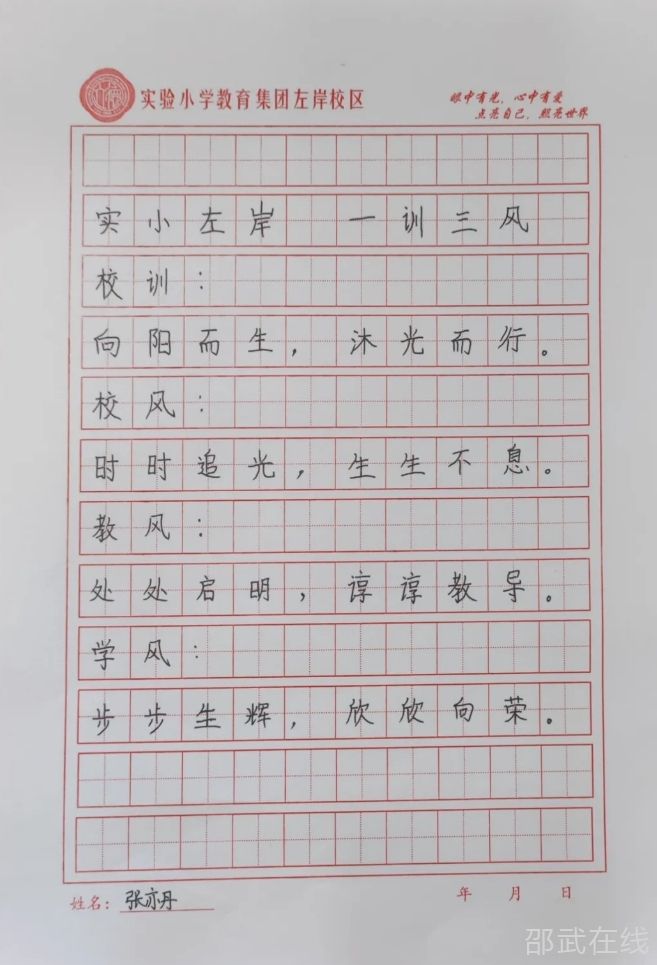 实验小学教育集团左岸校区
眼中有光，心中有爱
点亮自己，照亮世界
实小左岸 一训三风
校训：
向阳而生，沐光而行。
校风：
时时追光，生生不息。
教风：
处处启明，谆谆教导。
学风：
步步生辉，欣欣向荣。
姓名：张亦丹
年 月 日
邵武在线